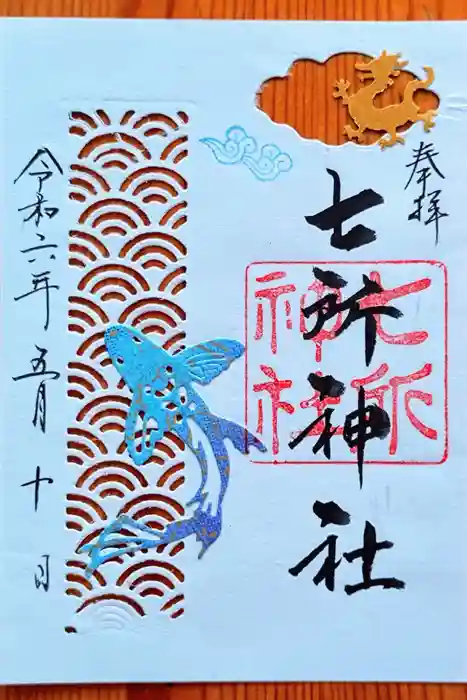 奉拝
七所神社
七所
神社
令和六年 五月 十 日